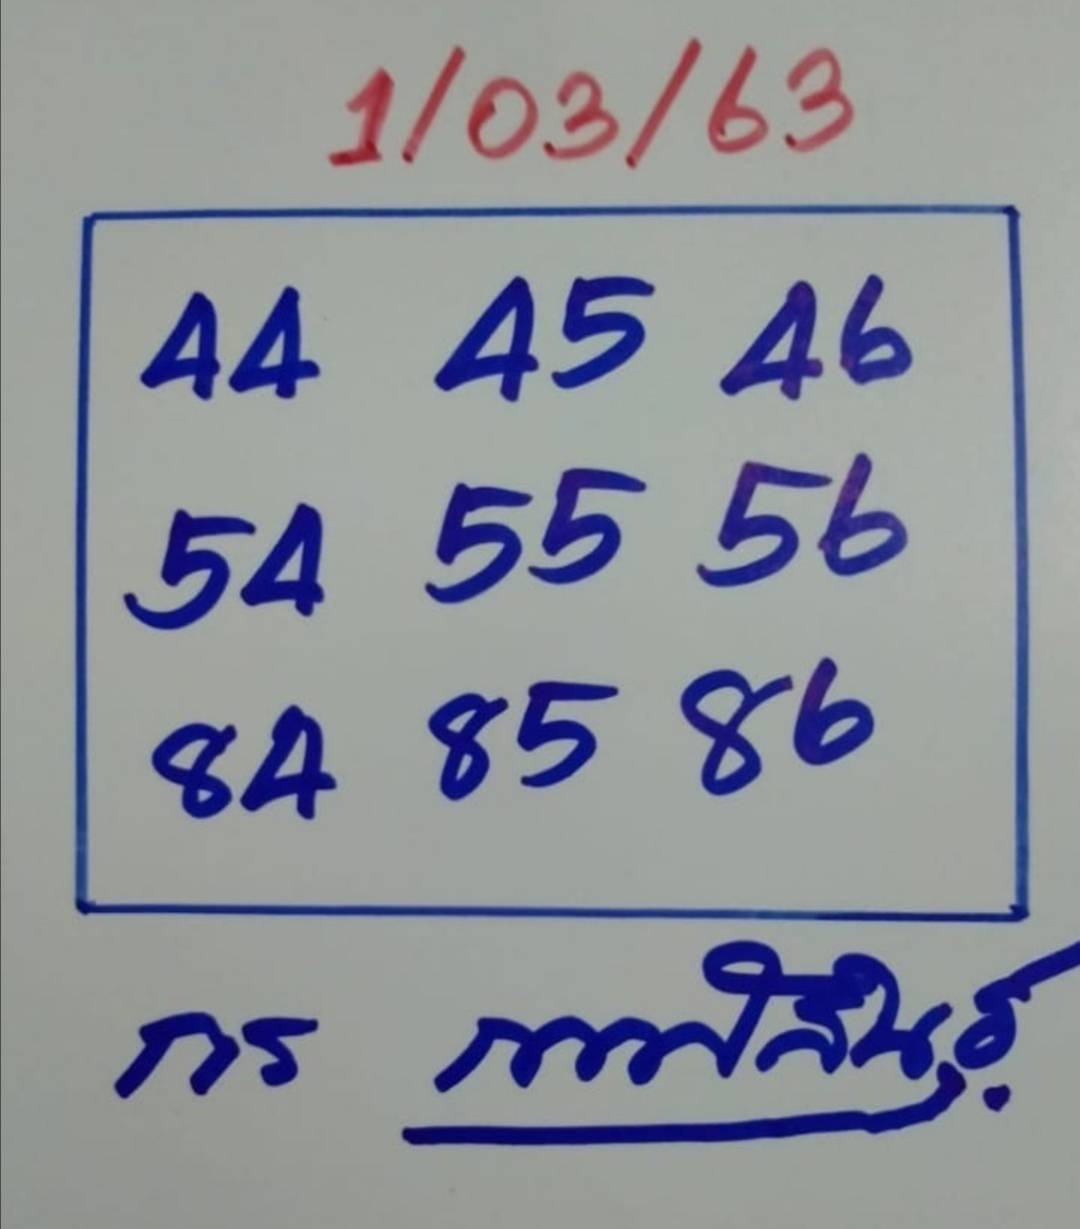 1/03/63
44 45 46
54 55 56
84 85 86
กร กาฬสินธุ์